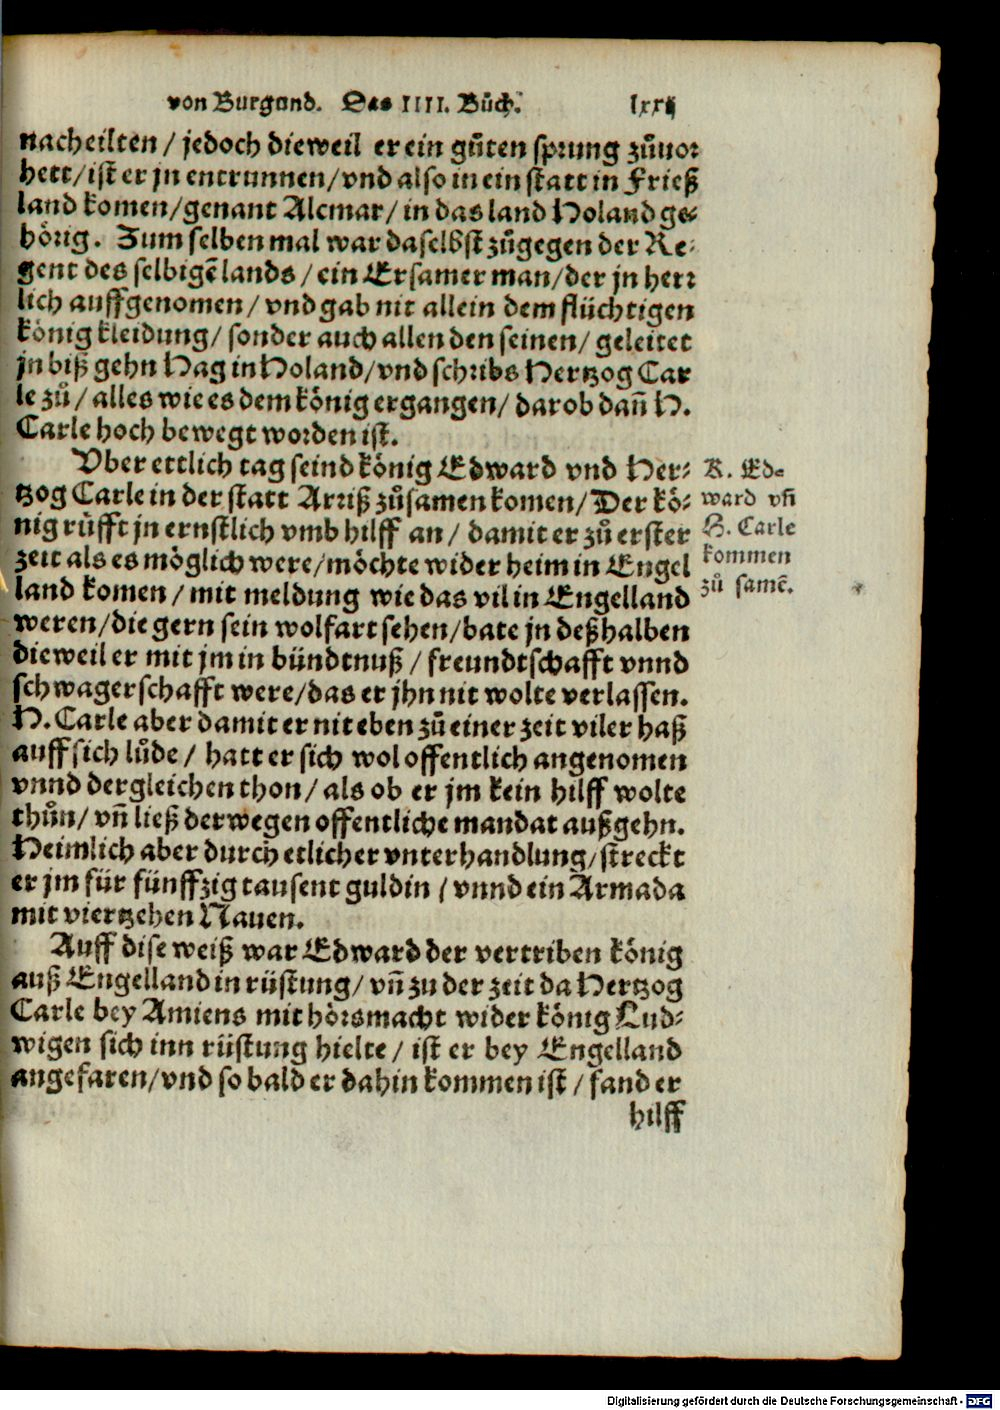 von Burgund. Das IIII. Bůch. lxxij
nacheilten / jedoch dieweil er ein gůten sprung zůuor
hett / ist er jn entrunnen / vnd also in ein statt in Frieß
land komen / genant Alcmar / in das land Holand ge⸗
hörig. Zum selben mal war daselbst zůgegen der Re⸗
gent des selbigē lands / ein Ersamer man / der jn herr
lich auffgenomen / vnd gab nit allein dem flüchtigen
könig kleidung / sonder auch allen den seinen / geleitet
jn biß gehn Hag in Holand / vnd schribs Hertzog Car
le zů / alles wie es dem könig ergangen / darob dañ H.
Carle hoch bewegt worden ist.
Vber ettlich tag seind könig Edward vnd Her⸗
tzog Carle in der statt Arriß zůsamen komen / Der kö⸗
nig růfft jn ernstlich vmb hilff an / damit er zů erster
zeit als es möglich were / möchte wider heim in Engel
land komen / mit meldung wie das vil in Engelland
weren / die gern sein wolfart sehen / bate jn deßhalben
dieweil er mit jm in bündtnuß / freundtschafft vnnd
schwagerschafft were / das er jhn nit wolte verlassen.
H. Carle aber damit er nit eben zů einer zeit viler haß
auff sich lůde / hatt er sich wol offentlich angenomen
vnnd dergleichen thon / als ob er jm kein hilff wolte
thůn / vñ ließ derwegen offentliche mandat außgehn.
Heimlich aber durch etlicher vnterhandlung / streckt
er jm für fünffzig tausent guldin / vnnd ein Armada
mit viertzehen Nauen.
Auff dise weiß war Edward der vertriben könig
auß Engelland in rüstung / vñ zu der zeit da Hertzog
Carle bey Amiens mit hörsmacht wider könig Lud⸗
wigen sich inn rüstung hielte / ist er bey Engelland
angefaren / vnd so bald er dahin kommen ist / fand er
hilff
K. Ed⸗
ward vñ
H. Carle
kommen
zů samē.
Digitalisierung gefördert durch die Deutsche Forschungsgemeinschaft - DFG